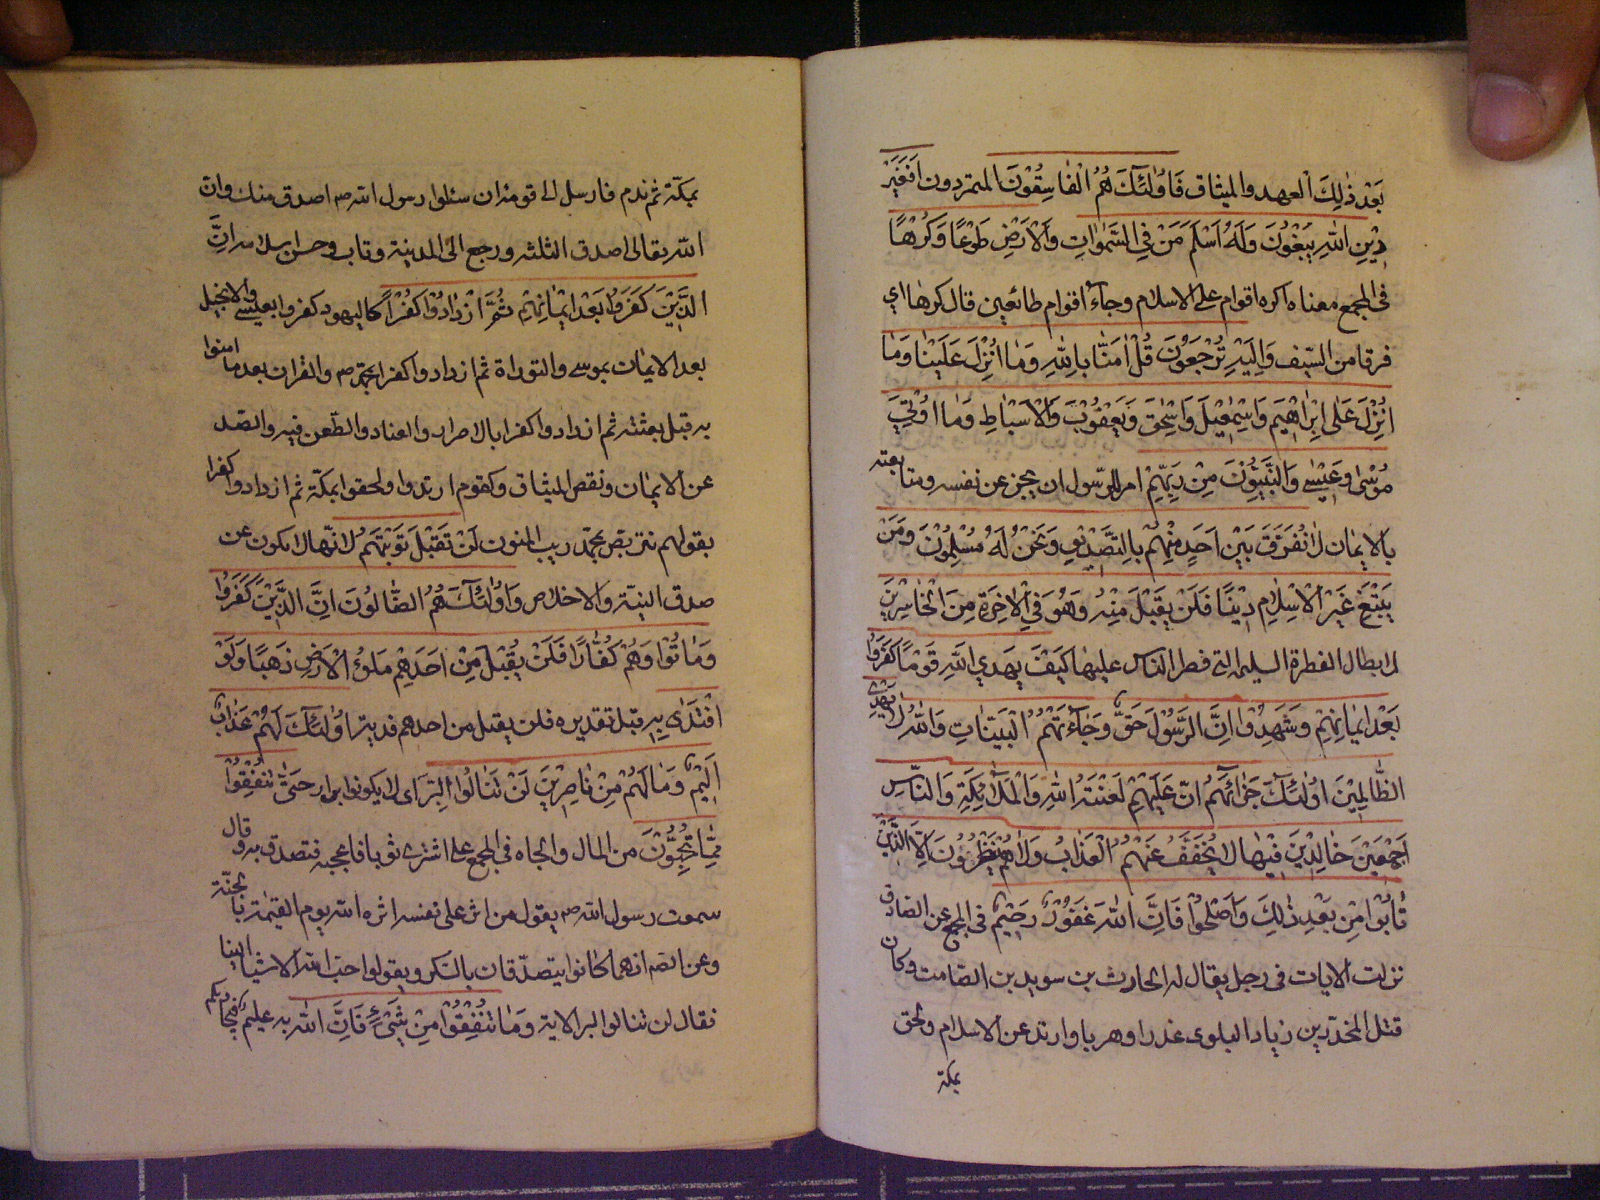 بَعْدَ ذٰلِكَ العهد والميثاق فَاُولٰئِكَ هُمُ الْفَاسِقُونَ المتمردون اَفَغَيْرَ
دِيْنِ اللهِ يَبْغُوْنَ وَلَهُ اَسْلَمَ مَنْ فِي السَّمٰوَاتِ وَالْاَرْضِ طَوْعًا وَكَرْهًا
في المجمع معناه اكره اقوام على الاسلام وجاء اقوام طائعين قال كرها اي
فرقا من السّيف وَاِلَيْهِ تُرْجَعُوْنَ قُلْ اٰمَنَّا بِاللهِ وَمَا اُنْزِلَ عَلَيْنَا وَمَا
اُنْزِلَ عَلٰى اِبْرَاهِيْمَ وَاِسْمٰعِيْلَ وَاِسْحٰقَ وَيَعْقُوْبَ وَالْاَسْبَاطِ وَمَا اُوْتِيَ
مُوْسٰى وَعِيْسٰى وَالنَّبِيُّوْنَ مِنْ رَبِّهِمْ امر للرّسول ان يخبر عن نفسه ومتابعته
بالايمان لَا نُفَرِّقُ بَيْنَ اَحَدٍ مِنْهُمْ بالتصديق وَنَحْنُ لَهُ مُسْلِمُوْنَ وَمَنْ
يَبْتَغِ غَيْرَ الْاِسْلَامِ دِيْنًا فَلَنْ يُقْبَلَ مِنْهُ وَهُوَ فِي الْاٰخِرَةِ مِنَ الْخَاسِرِيْنَ
لابطال الفطرة السليمة التي فطر الناس عليها كَيْفَ يَهْدِي اللهُ قَوْمًا كَفَرُوْا
بَعْدَ اِيْمَانِهِمْ وَشَهِدُوْا اَنَّ الرَّسُوْلَ حَقٌّ وَجَاءَهُمُ الْبَيِّنَاتُ وَاللهُ لَا يَهْدِي
الظَّالِمِيْنَ اُولٰئِكَ جَزَاؤُهُمْ اَنَّ عَلَيْهِمْ لَعْنَةَ اللهِ وَالْمَلَائِكَةِ وَالنَّاسِ
اَجْمَعِيْنَ خَالِدِيْنَ فِيْهَا لَا يُخَفَّفُ عَنْهُمُ الْعَذَابُ وَلَا هُمْ يُنْظَرُوْنَ اِلَّا الَّذِيْنَ
تَابُوْا مِنْ بَعْدِ ذٰلِكَ وَاَصْلَحُوْا فَاِنَّ اللهَ غَفُوْرٌ رَحِيْمٌ في المجمع عن الصادق
نزلت الايات في رجل يقال له الحارث بن سويد بن الصامت وكان
قتل المحذر بن زياد البلوي غدرا وهربا وارتد عن الاسلام ولحق
بمكة
بمكّة ثم ندم فارسل الى قومه ان سئلوا رسول الله ص اصدق منك وان
الله تعالى اصدق الثلثة ورجع الى المدينة وتاب وحسن اسلامه اِنَّ
الَّذِيْنَ كَفَرُوْا بَعْدَ اِيْمَانِهِمْ ثُمَّ ازْدَادُوْا كُفْرًا كاليهود كفروا بعيسى والانجيل
بعد الايمان بموسى والتوراة ثم ازدادوا كفرا بمحمّد ص والقران بعد ما امنوا
به قبل بعثته ثم ازدادوا كفرا بالاصرار والعناد والطّعن فيه والصّد
عن الايمان ونقض الميثاق وكقوم ارتدوا ولحقوا بمكّة ثم ازدادوا كفرا
بقولهم نتربّص بمحمّد ريب المنون لَنْ تُقْبَلَ تَوْبَتُهُمْ لانّها لا يكون عن
صدق النيّة والاخلاص وَاُولٰئِكَ هُمُ الضَّالُّوْنَ اِنَّ الَّذِيْنَ كَفَرُوْا
وَمَاتُوْا وَهُمْ كُفَّارٌ فَلَنْ يُقْبَلَ مِنْ اَحَدِهِمْ مِلْؤُ الْاَرْضِ ذَهَبًا وَلَوِ
افْتَدٰى بِهِ قبل تقديره فلن يقبل من احدهم فدية اُولٰئِكَ لَهُمْ عَذَابٌ
اَلِيْمٌ وَمَا لَهُمْ مِنْ نَاصِرِيْنَ لَنْ تَنَالُوا الْبِرَّ اى لا يكونوا ابرار حَتّٰى تُنْفِقُوْا
مِمَّا تُحِبُّوْنَ من المال والجاه في المجمع على اشترى ثوبا فاعجبه فتصدق به وقال
سمعت رسول الله ص يقول من اثر على نفسه اثره الله يوم القيمة بالجنّة
وعن انهما كانوا يتصدّقان بالسكر ويقولوا احبّ الاشياء الينا
فقال لن تنالوا البر الاية وَمَا تُنْفِقُوْا مِنْ شَيْءٍ فَاِنَّ اللهَ بِهِ عَلِيْمٌ فيجازيكم